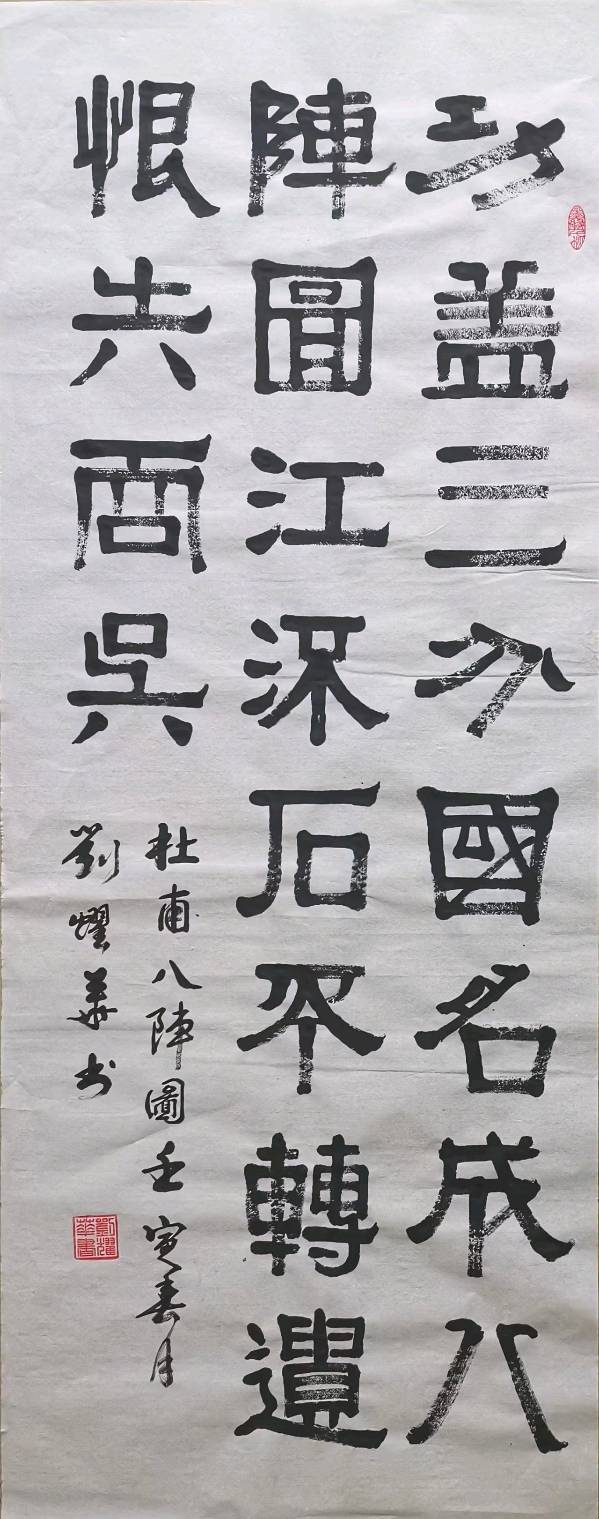 功盖三分國名成八
陣圖江流石不轉遺
恨失吞吳
杜甫八陣圖壬寅春月
劉燿華书
劉燿
華書